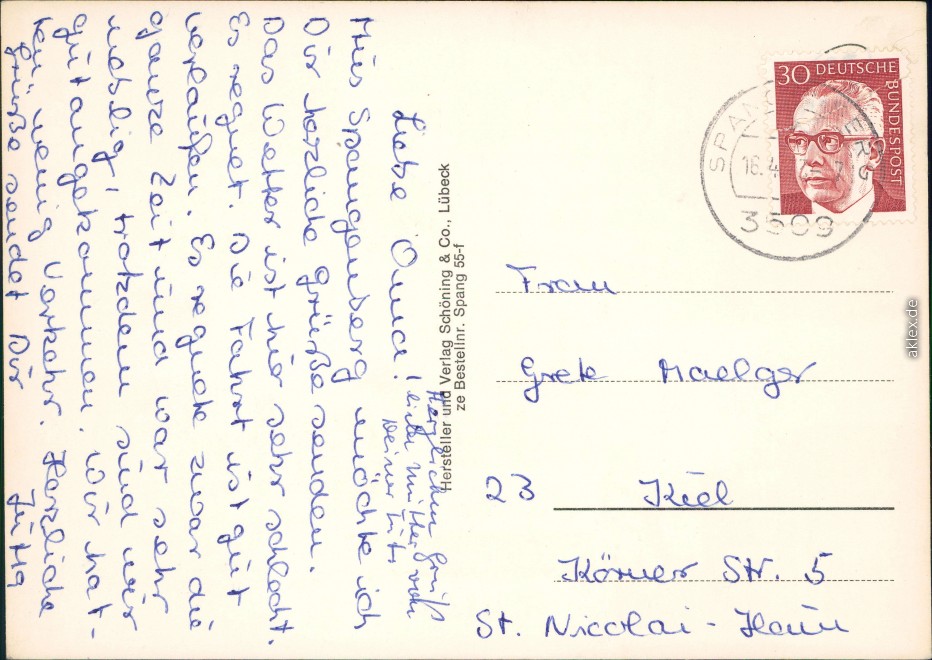 Liebe Oma!
Aus Spangenberg möchte ich
Dir herzliche Grüße senden.
Das Wetter ist hier sehr schlecht.
Es regnet. Die Fahrt ist gut
verlaufen. Es regnete zwar die
ganze Zeit und war sehr
neblig, trotzdem sind wir
gut angekommen. Wir hat-
ten wenig Verkehr. Herzliche
Grüße sendet Dir Jutta
Herzlichen Gruß
liebe Mutter von
Deiner
Hersteller und Verlag Schöning & Co., Lübeck
ze Bestellnr. Spang 55-f
30 DEUTSCHE
BUNDESPOST
SPANGENBERG
16.4
3509
Frau
Grete Maelger
23 Kiel
Körner Str. 5
St. Nicolai-Heim
aklex.de